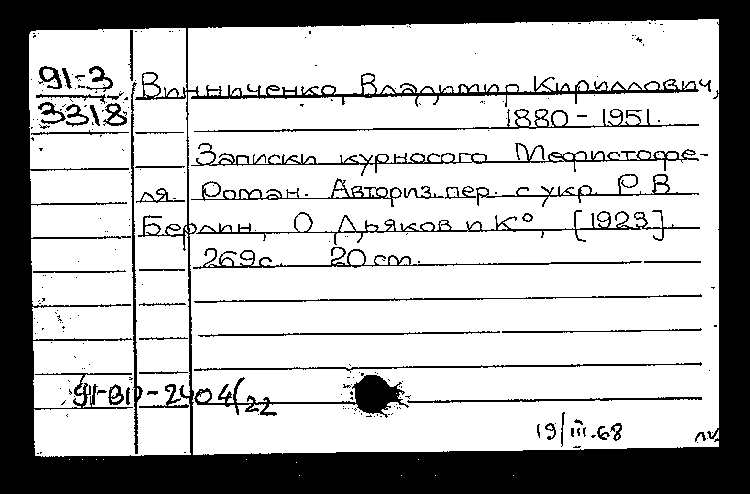 91-3
3318
Винниченко, Владимир Кириллович,
1880-1951.
Записки курносого Мефистофе-
ля. Роман. Авториз. пер. с укр. Р. В.
Берлин, О. Дьяков и К°, [1923].
269 с. 20 cm.
2404/22
19/III.68